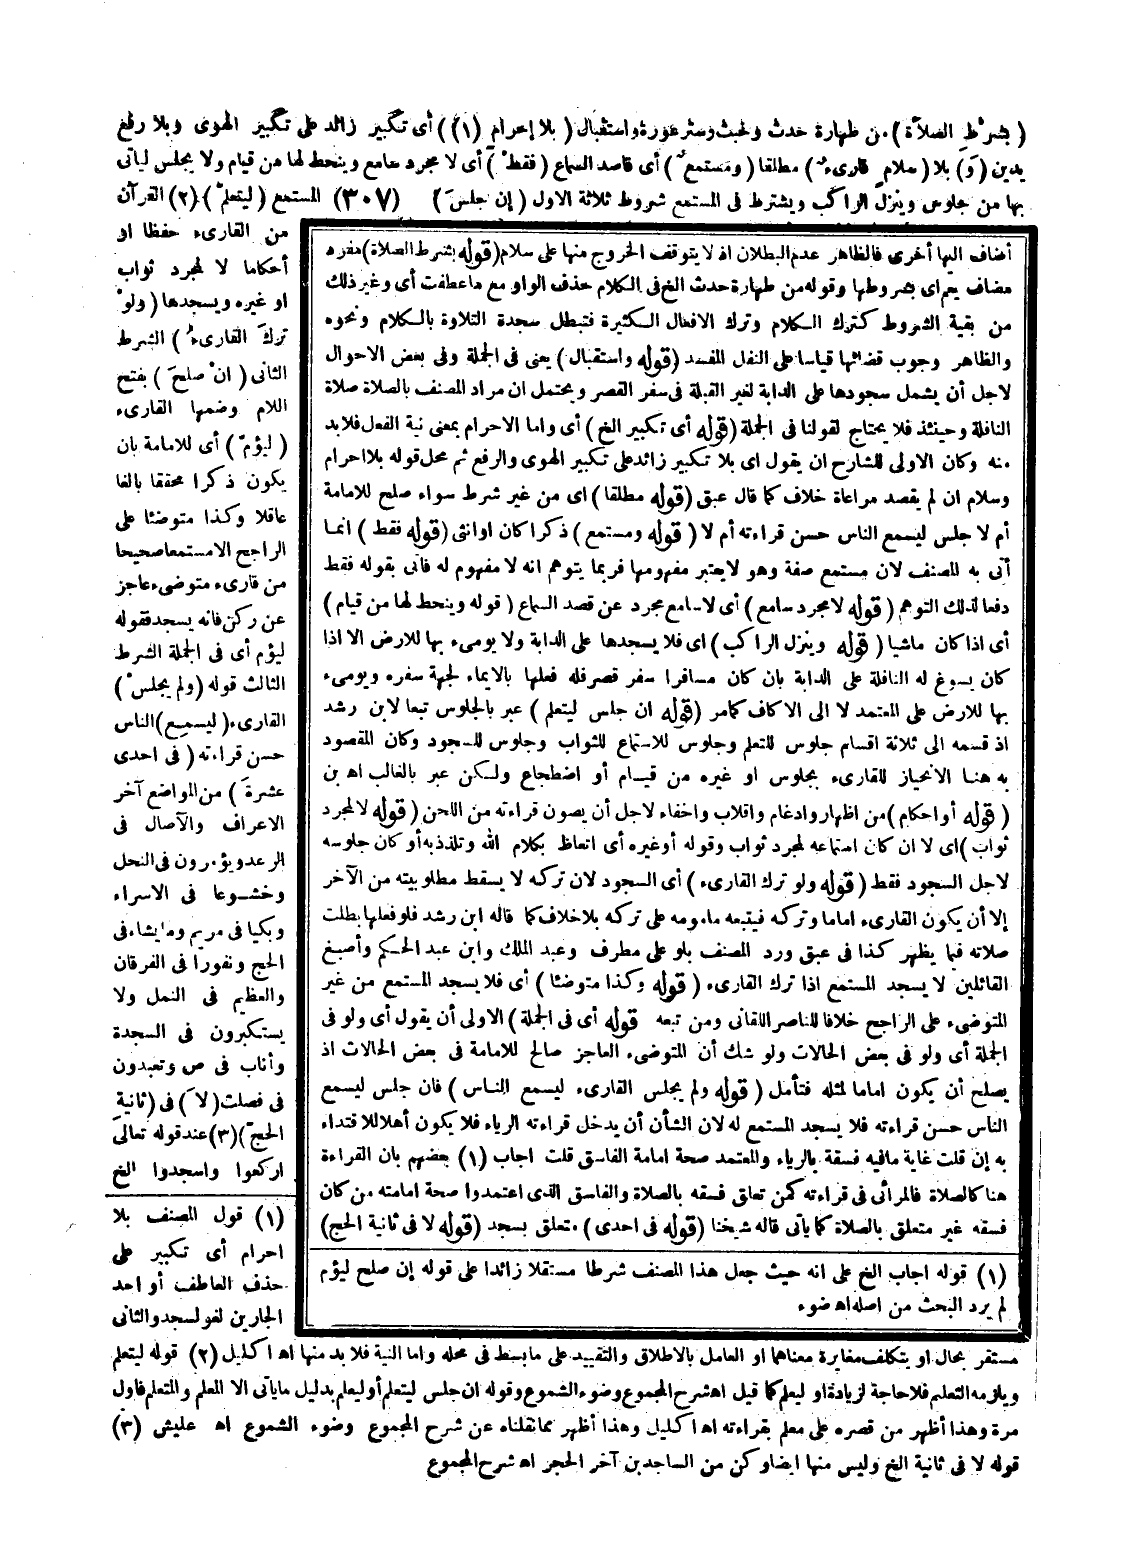 ( بشرط الصلاة ) من طهارة حدث وخبث وستر عورة واستقبال ( بلا إحرام (١)) أى تكبير زائد على تكبير الهوى وبلا رفع
يدين ( وَ ) بلا ( سلام قارىء ) مطلقا ( ومستمع ) أى قاصد السماع ( فقط ) أى لا مجرد سامع وينحط لها من قيام ولا يجلس ليأتى
بها من جلوس وينزل الراكب ويشترط فى المستمع شروط ثلاثة الاول ( إن جلس ) (٣٠٧) المستمع ( ليتعلم ) (٢) القرآن
من القارىء حفظا او
أحكاما لا لمجرد ثواب
او غيره ويسجدها ( ولو
ترك القارىء ) الشرط
الثانى ( ان صلح ) بفتح
اللام وضمها القارىء
( ليؤم ) أى للامامة بان
يكون ذكرا محققا بالغا
عاقلا وكذا متوضئا على
الراجح الامستمعا صحيحا
من قارىء متوضىء عاجز
عن ركن فانه يسجد فقوله
ليؤم أى فى الجملة الشرط
الثالث قوله ( ولم يجلس )
القارىء ( ليسمع ) الناس
حسن قراءته ( فى احدى
عشرة ) من المواضع آخر
الاعراف والآصال فى
الرعد ويؤمرون فى النحل
وخشوعا فى الاسراء
وبكيا فى مريم وما يشاء فى
الحج ونفورا فى الفرقان
والعظيم فى النمل ولا
يستكبرون فى السجدة
وأناب فى ص وتعبدون
فى فصلت ( لا ) فى ( ثانية
الحج ) (٣) عند قوله تعالى
اركعوا واسجدوا الخ
أضاف اليها أخرى فالظاهر عدم البطلان اذ لا يتوقف الخروج منها على سلام ( قوله بشرط الصلاة ) مفرد
مضاف يعم اى بشروطها وقوله من طهارة حدث الخ فى الكلام حذف الواو مع ما عطفت أى وغير ذلك
من بقية الشروط كترك الكلام وترك الافعال الكثيرة فتبطل سجدة التلاوة بالكلام ونحوه
والظاهر وجوب قضائها قياسا على النفل المفسد ( قوله واستقبال ) يعنى فى الجملة وفى بعض الاحوال
لاجل أن يشمل سجودها على الدابة لغير القبلة فى سفر القصر ويحتمل ان مراد المصنف بالصلاة صلاة
النافلة وحينئذ فلا يحتاج لقولنا فى الجملة ( قوله أى تكبير الخ ) أى واما الاحرام بمعنى نية الفعل فلا بد
منه وكان الاولى للشارح ان يقول اى بلا تكبير زائد على تكبير الهوى والرفع ثم محل قوله بلا احرام
وسلام ان لم يقصد مراعاة خلاف كما قال عبق ( قوله مطلقا ) اى من غير شرط سواء صلح للامامة
أم لا جلس ليسمع الناس حسن قراءته أم لا ( قوله ومستمع ) ذكرا كان او انثى ( قوله فقط ) انما
أتى به المصنف لان مستمع صفة وهو لا يعتبر مفهومها فربما يتوهم انه لا مفهوم له فاتى بقوله فقط
دفعا لذلك التوهم ( قوله لا مجرد سامع ) أى لا سامع مجرد عن قصد السماع ( قوله وينحط لها من قيام )
أى اذا كان ماشيا ( قوله وينزل الراكب ) اى فلا يسجدها على الدابة ولا يومىء بها للارض الا اذا
كان يسوغ له النافلة على الدابة بان كان مسافرا سفر قصر فله فعلها بالايماء لجهة سفره ويومىء
بها للارض على المعتمد لا الى الاكاف كما مر ( قوله ان جلس ليتعلم ) عبر بالجلوس تبعا لابن رشد
اذ قسمه الى ثلاثة اقسام جلوس للتعلم وجلوس للاستماع للثواب وجلوس للسجود وكان المقصود
به هنا الانحياز للقارىء بجلوس او غيره من قيام أو اضطجاع ولكن عبر بالغالب اه بن
( قوله أو احكام ) من اظهار وادغام واقلاب واخفاء لاجل أن يصون قراءته من اللحن ( قوله لا لمجرد
ثواب ) اى لا ان كان استماعه لمجرد ثواب وقوله أو غيره أى اتعاظ بكلام الله وتلذذ به أو كان جلوسه
لاجل السجود فقط ( قوله ولو ترك القارىء ) أى السجود لان تركه لا يسقط مطلوبيته من الآخر
إلا أن يكون القارىء اماما وتركه فيتبعه مأمومه على تركه بلا خلاف كما قاله ابن رشد فلو فعلها بطلت
صلاته فيما يظهر كذا فى عبق ورد المصنف بلو على مطرف وعبد الملك وابن عبد الحكم وأصبغ
القائلين لا يسجد المستمع اذا ترك القارىء ( قوله وكذا متوضئا ) أى فلا يسجد المستمع من غير
المتوضىء على الراجح خلافا للناصر اللقانى ومن تبعه قوله أى فى الجملة ) الاولى أن يقول أى ولو فى
الجملة أى ولو فى بعض الحالات ولو شك أن المتوضىء العاجز صالح للامامة فى بعض الحالات اذ
يصلح أن يكون اماما لمثله فتأمل ( قوله ولم يجلس القارىء ليسمع الناس ) فان جلس ليسمع
الناس حسن قراءته فلا يسجد المستمع له لان الشأن أن يدخل قراءته الرياء فلا يكون أهلا للاقتداء
به إن قلت غاية مافيه فسقة بالرياء والمعتمد صحة امامة الفاسق قلت اجاب (١) بعضهم بان القراءة
هنا كالصلاة فالمرائى فى قراءته كمن تعلق فسقه بالصلاة والفاسق الذى اعتمدوا صحة امامته من كان
فسقه غير متعلق بالصلاة كما يأتى قاله شيخنا ( قوله فى احدى ) متعلق بسجد ( قوله لا فى ثانية الحج )
(١) قوله اجاب الخ على انه حيث جعل هذا المصنف شرطا مستقلا زائدا على قوله إن صلح ليؤم
لم يرد البحث من اصله اه ضوء
(١) قول المصنف بلا
احرام أى تكبير على
حذف العاطف أو احد
الجارين لغو لسجد والثانى
مستقر بحال او يتكلف مغايرة معناهما او العامل بالاطلاق والتقييد على ما بسط فى محله واما النية فلا بد منها اه اكليل (٢) قوله ليتعلم
ويلزمه التعلم فلا حاجة لزيادة او ليعلم كما قيل اه شرح المجموع وضوء الشموع وقوله ان جلس ليتعلم أو ليعلم بدليل ما يأتى الا المعلم والمتعلم فاول
مرة وهذا أظهر من قصره على معلم بقراءته اه اكليل وهذا أظهر مما نقلناه عن شرح المجموع وضوء الشموع اه عليش (٣)
قوله لا فى ثانية الخ وليس منها ايضا وكن من الساجدين آخر الحجر اه شرح المجموع